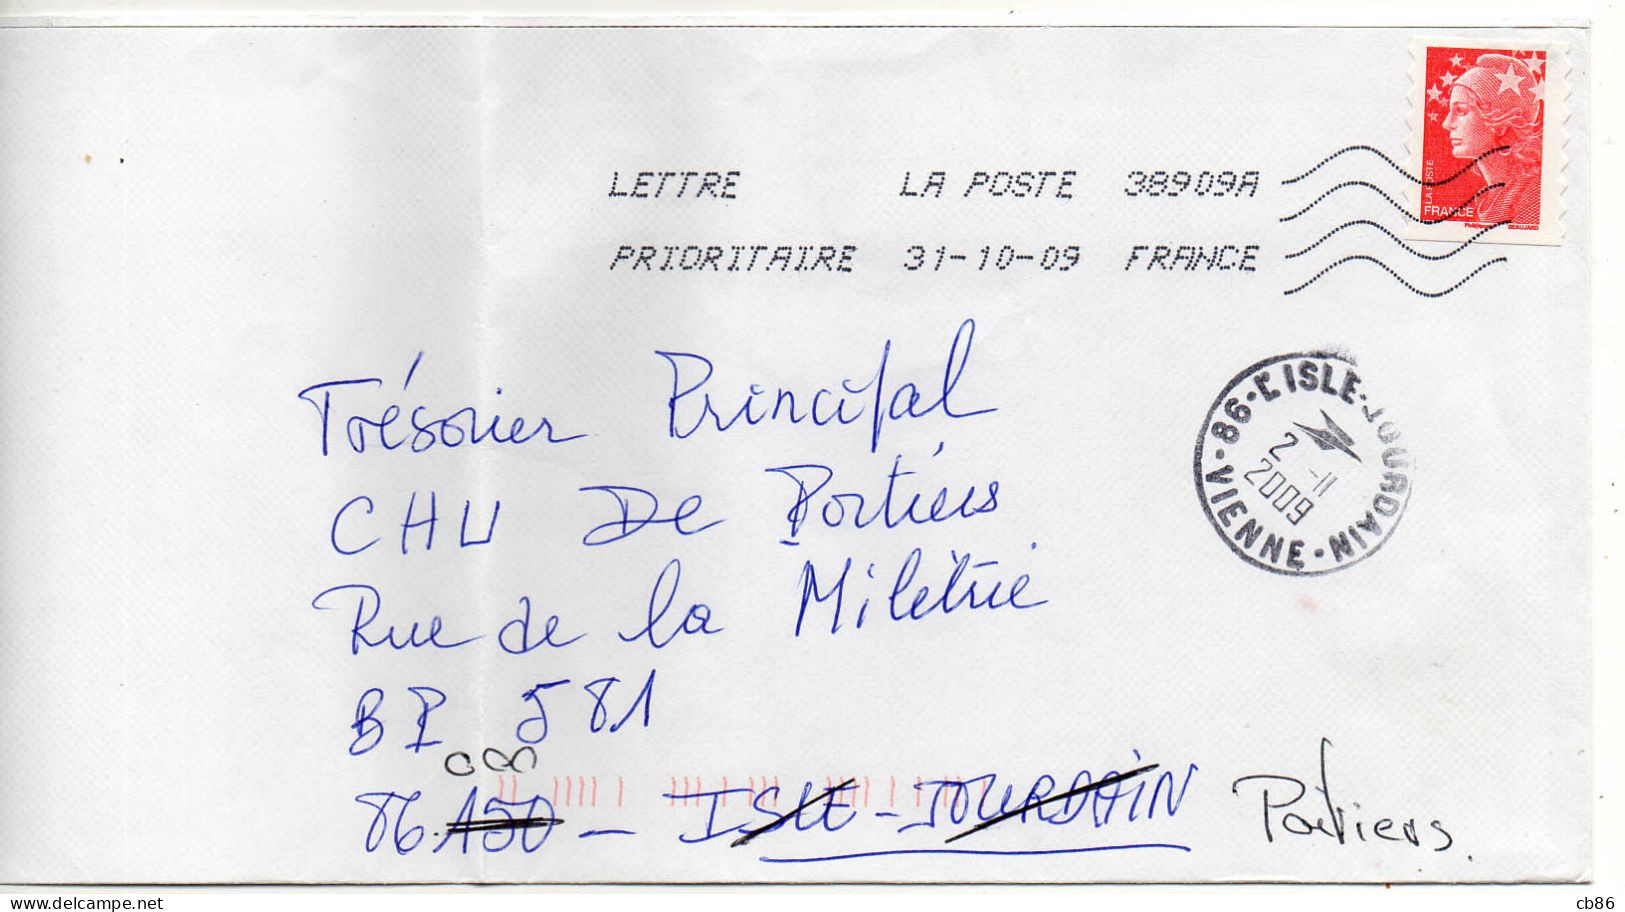 LETTRE LA POSTE 38909A
PRIORITAIRE 31-10-09 FRANCE
LA POSTE
FRANCE
BEAUJARD
86 - L'ISLE-JOURDAIN
2 -11
2009
VIENNE
Trésorier Principal
CHU De Poitiers
Rue de la Milétrie
BP 581
000
86.150 - ISLE-JOURDAIN Poitiers.
delcampe.net
cb86